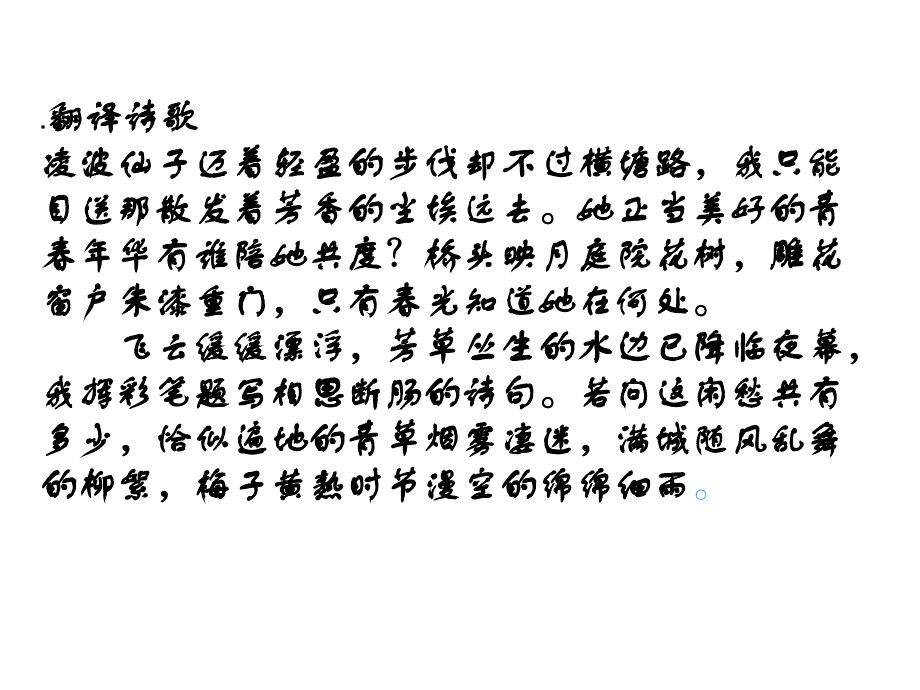 .翻译诗歌
凌波仙子迈着轻盈的步伐却不过横塘路，我只能
目送那散发着芳香的尘埃远去。她正当美好的青
春年华有谁陪她共度？桥头映月庭院花树，雕花
窗户朱漆重门，只有春光知道她在何处。
飞云缓缓漂浮，芳草丛生的水边已降临夜幕，
我挥彩笔题写相思断肠的诗句。若问这闲愁共有
多少，恰似遍地的青草烟雾凄迷，满城随风乱舞
的柳絮，梅子黄熟时节漫空的绵绵细雨。